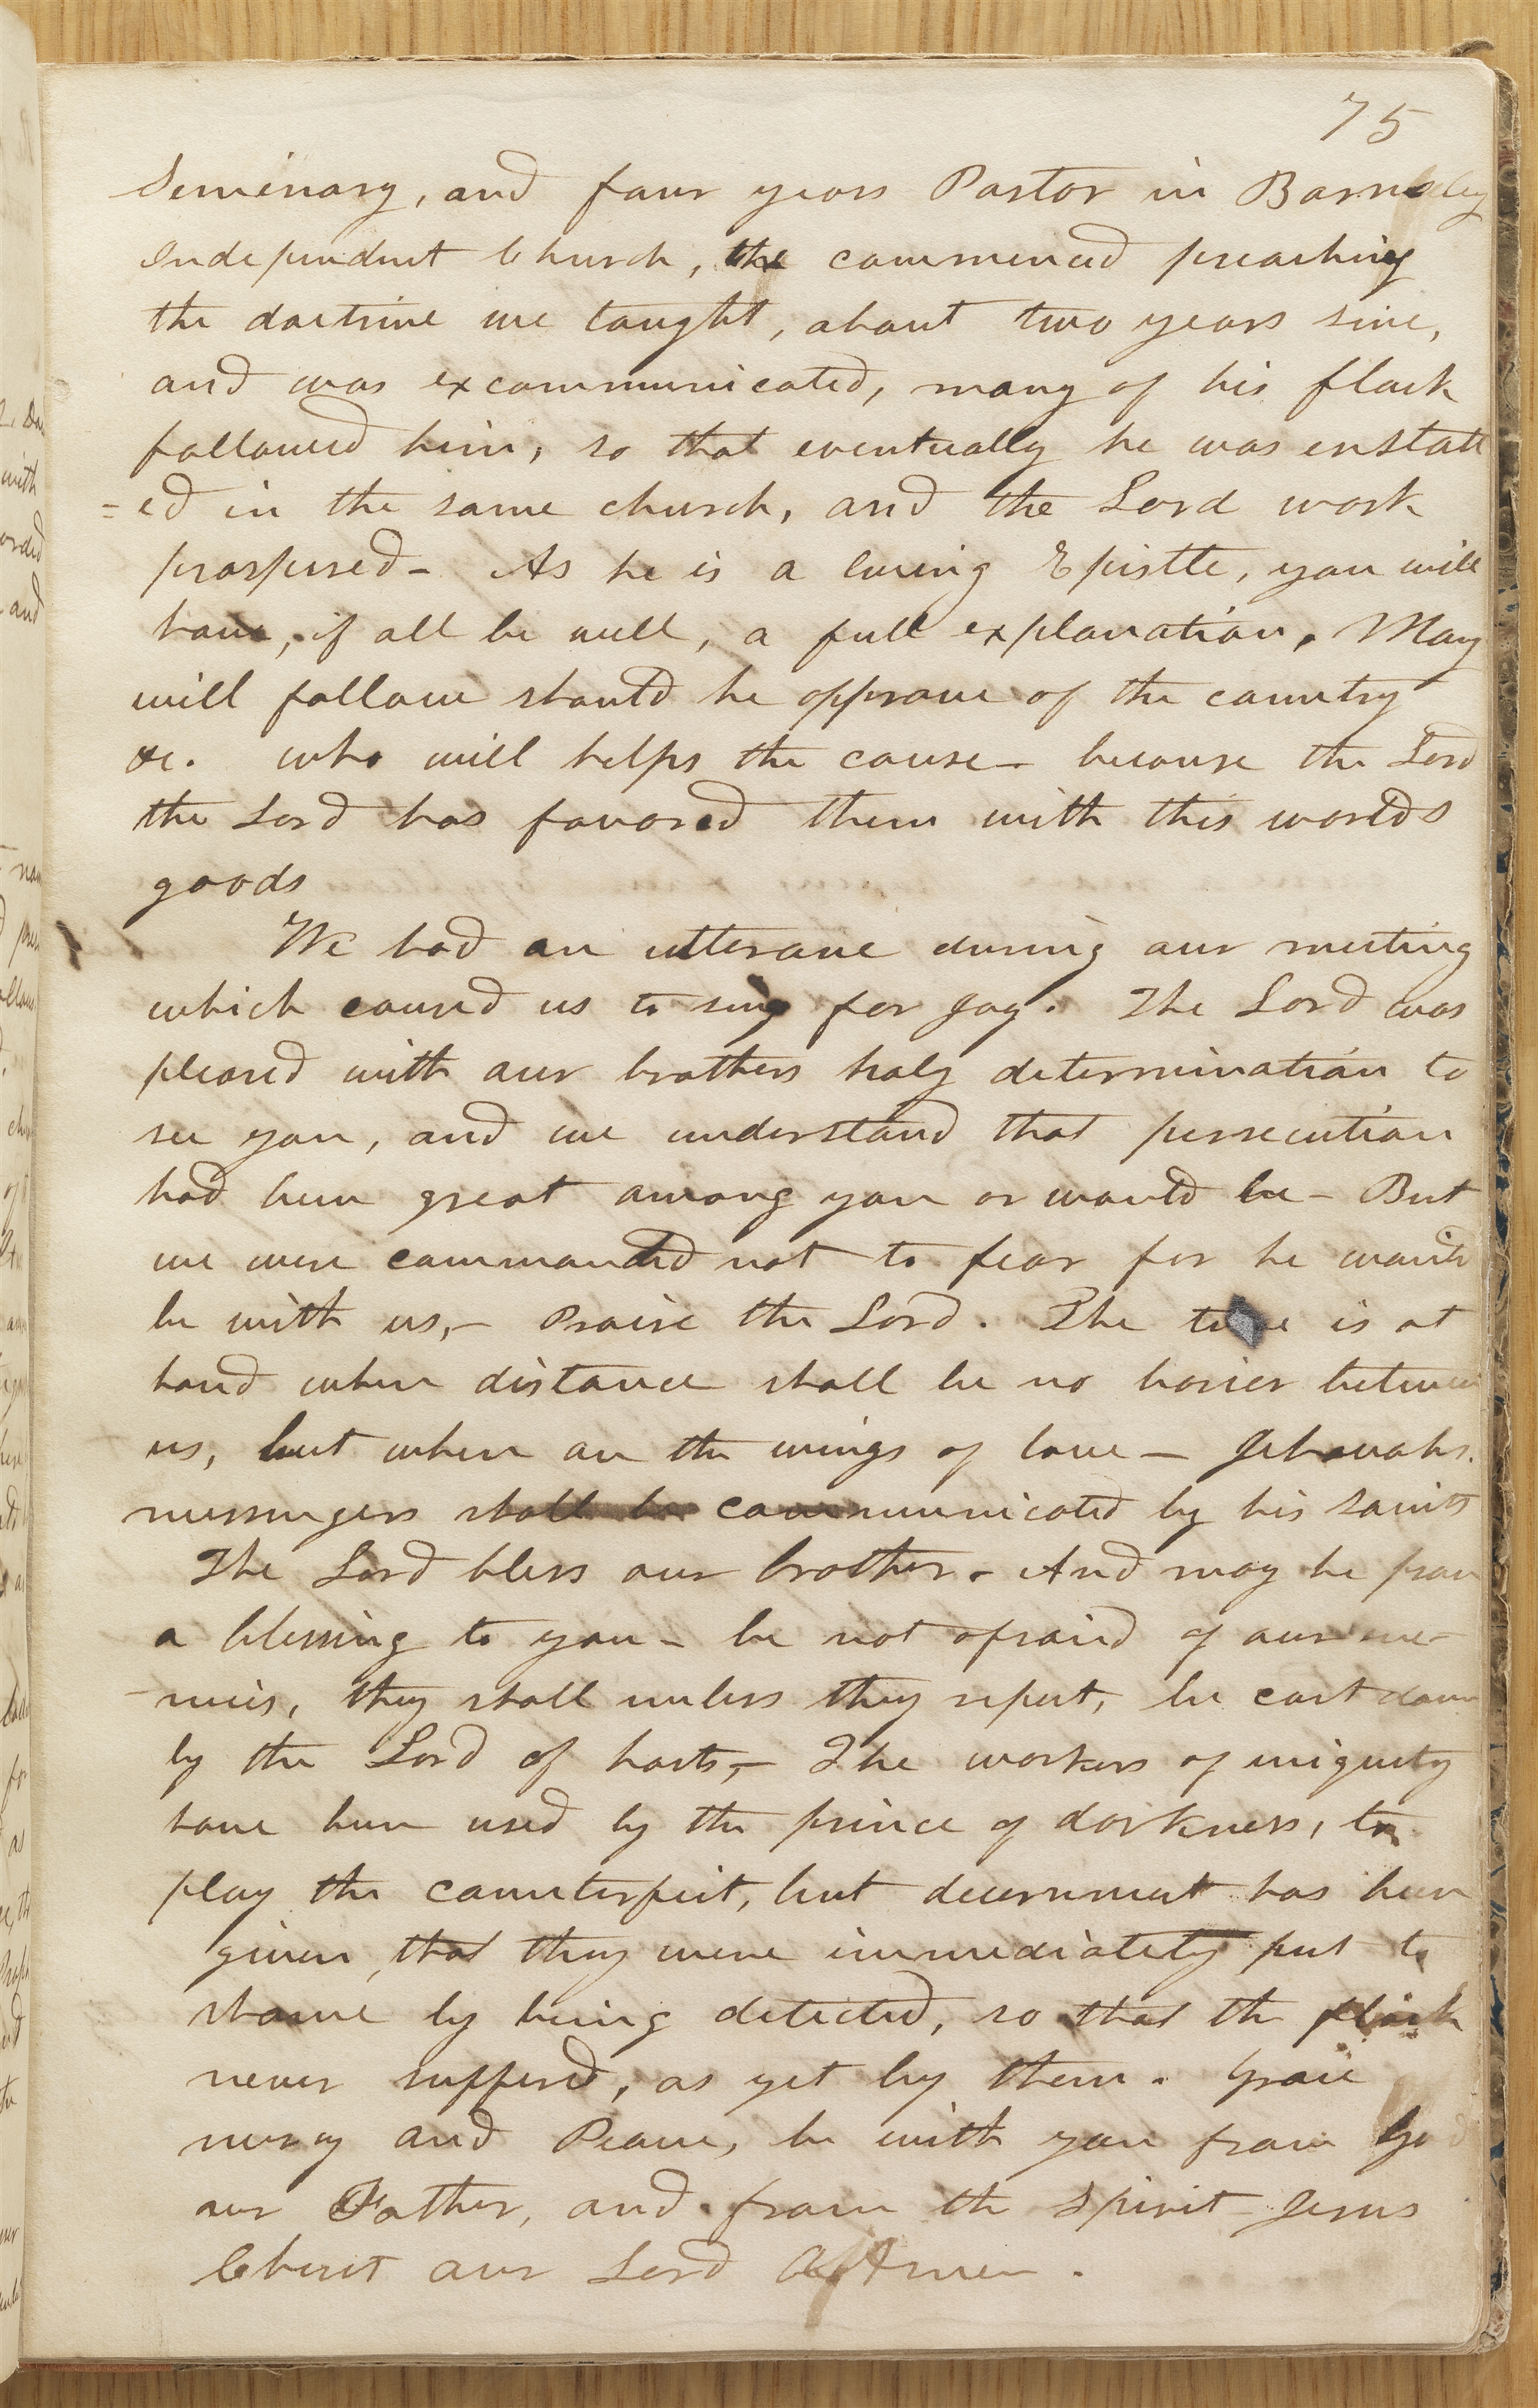 75
Seminary, and four years Pastor in Barnsley
Independent Church, he commenced preaching
the doctrine we taught, about two years sinc,
and was excommunicated, many of his flock
followed him, so that eventually he was enstall
=ed in the same church, and the Lord work
prospered - As he is a living Epistle, you will
have, if all be well, a full explanation. Many
will follow should he approve of the country
&c. who will helps the cause - because the Lord
the Lord has favored them with this worlds
goods
We had an utterance during our meeting
which caused us to sing for Joy. The Lord was
pleased with our brothers holy determination to
see you, and we understand that persecution
had been great among you or would be - But
we were commanded not to fear for he would
be with us, - Praise the Lord. The time is at
hand when distance shall be no barier between
us, but when on the wings of love - Jehovahs.
messengers shall be communicated by his saints
The Lord bless our brother. And may he prove
a blessing to you - be not afraid of our ene-
-mies, they shall unless they repent, be cast down
by the Lord of hosts, - The workers of iniquity
have been used by the prince of darkness, to
play the counterfeit, but decernment has been
given, that they were immediately put to
shame by being detected, so that the flock
never suffered, as yet by them. Grace
mercy and Peace, be with you from God
our Father, and from the Spirit Jesus
Christ our Lord Amen.